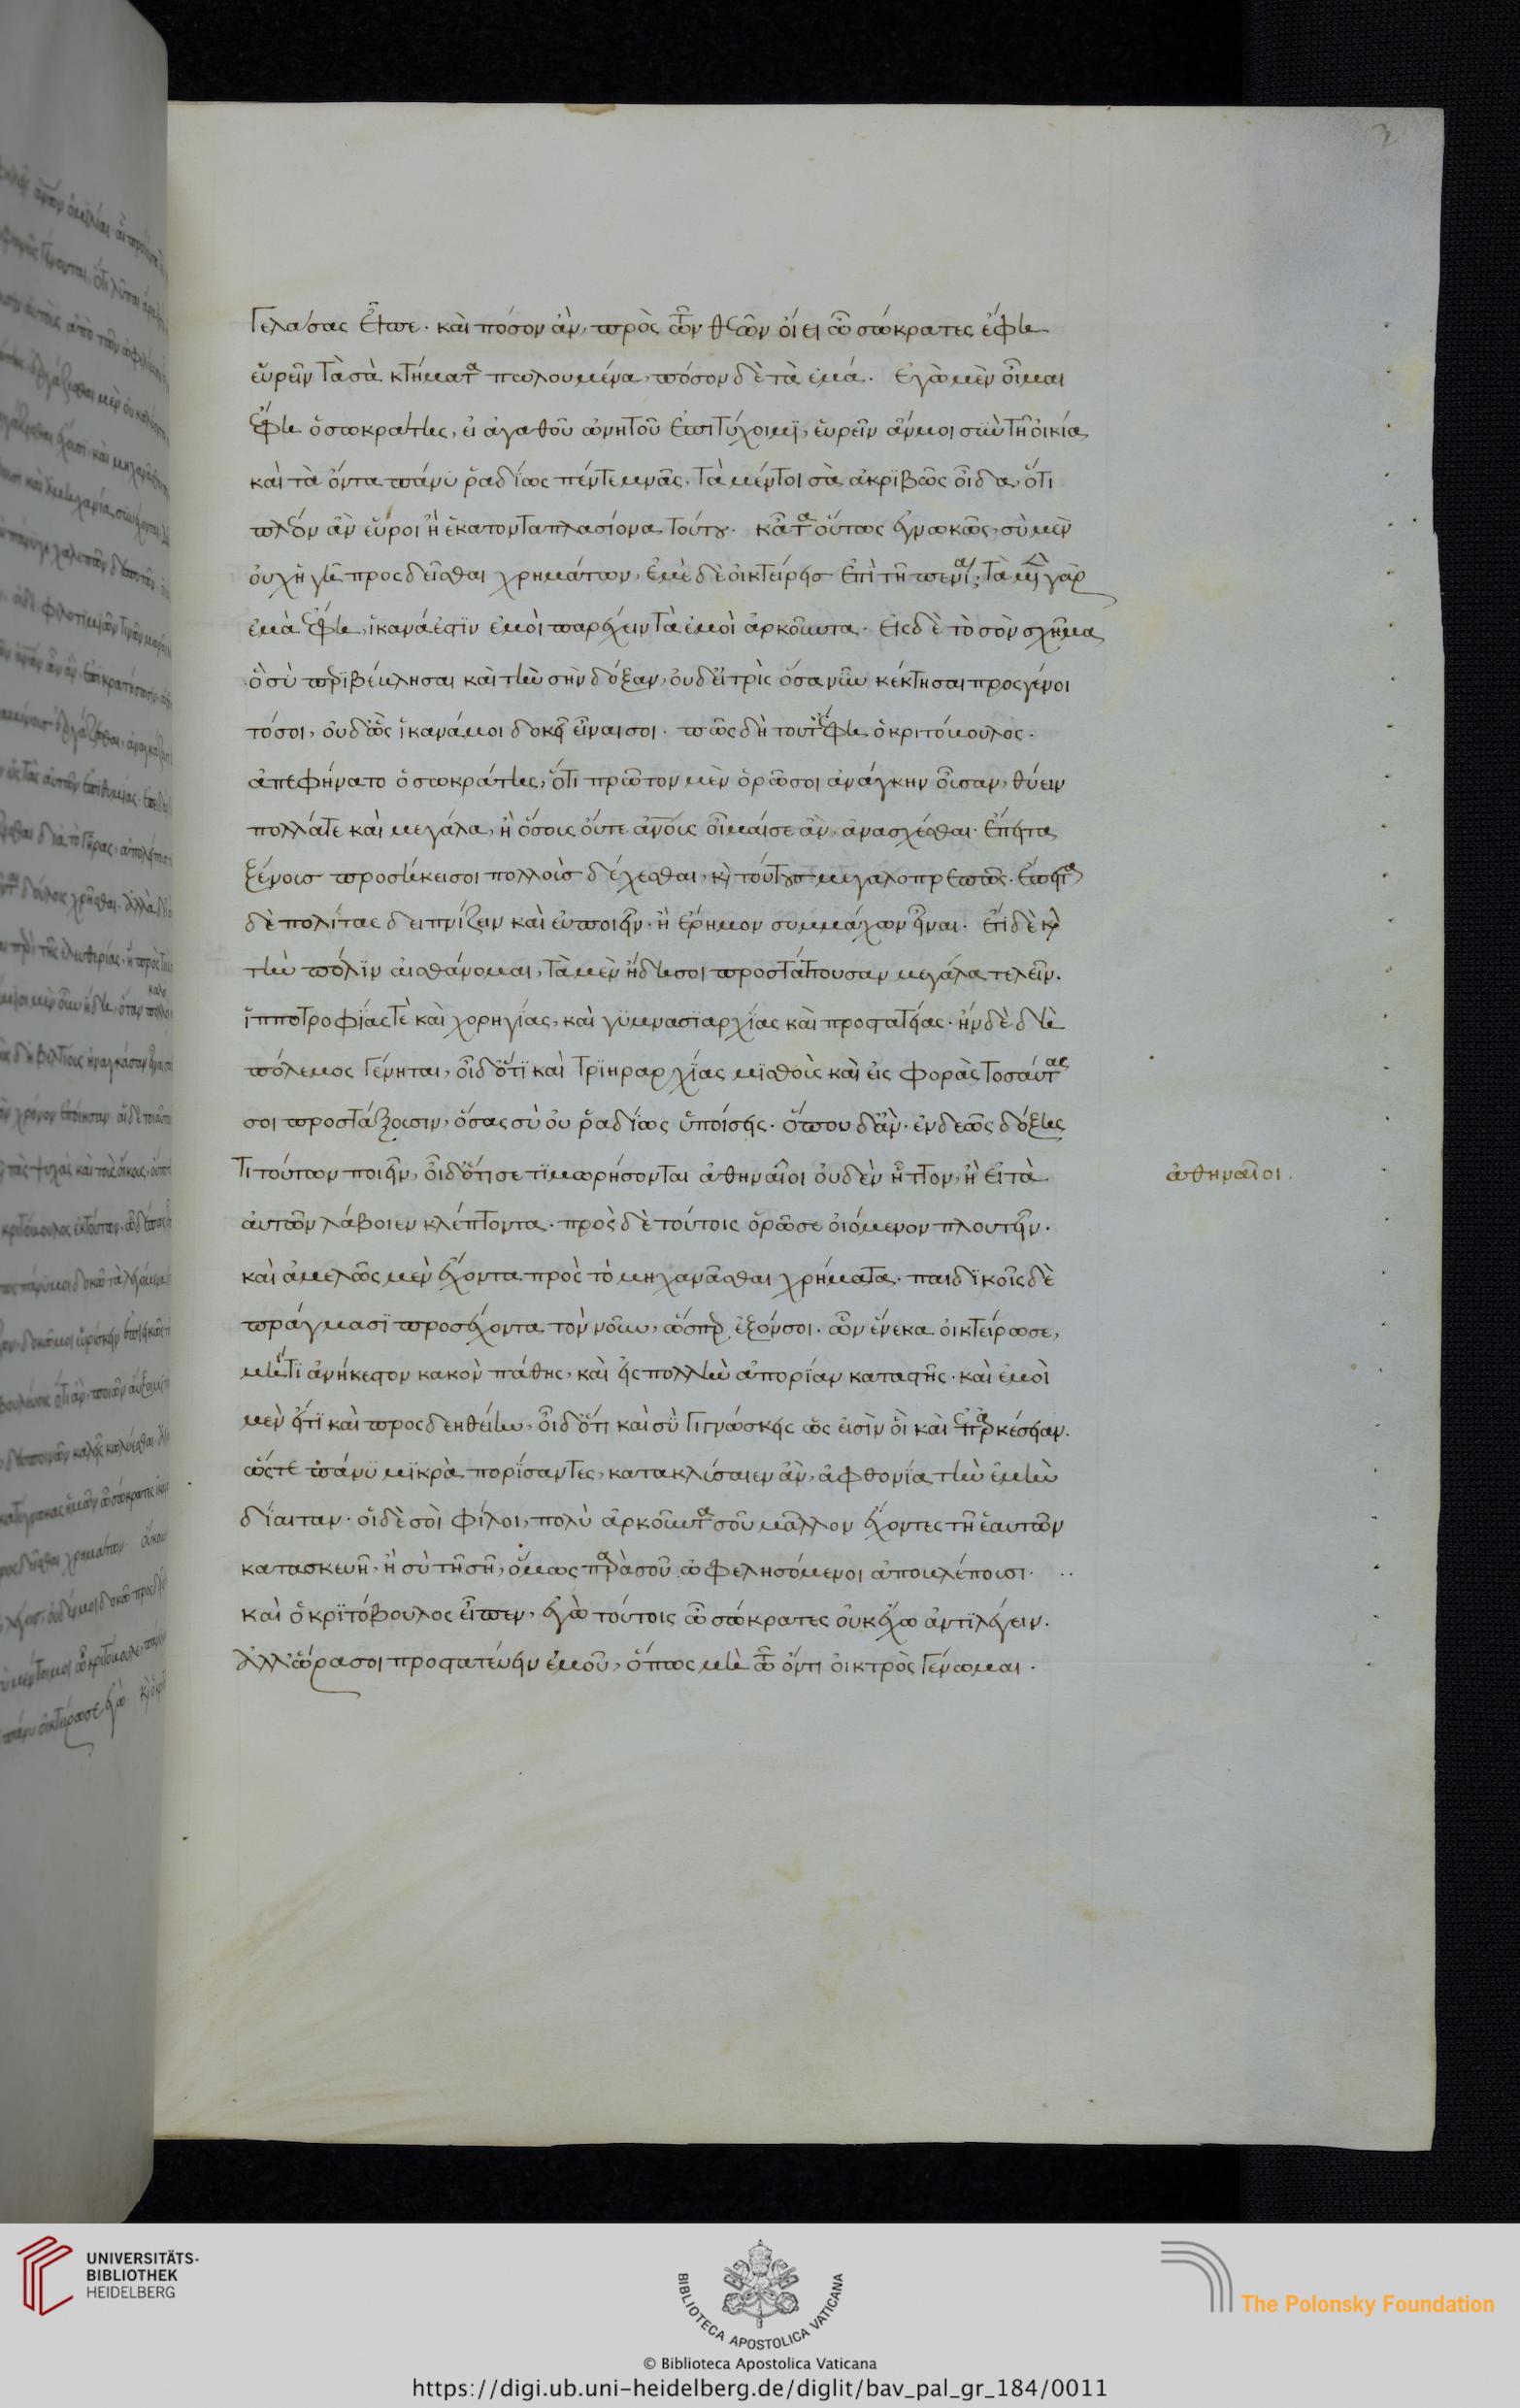 Γελάσας εἶπε. καὶ πόσον ἂν, πρὸς τῶν θεῶν οἴει ὦ σώκρατες ἔφη
εὑρεῖν τὰ σὰ κτήματα πωλουμένα, πόσον δὲ τὰ ἐμά. Εγὼ μὲν οἶμαι
ἔφη ὁ σωκράτης, εἰ ἀγαθοῦ ὠνητοῦ ἐπιτύχοιμϊ, εὑρεῖν ἄν μοι σὺν τῆ οἰκία
καὶ τὰ ὄντα πάνϋ ῥαδίως πέντε μνᾶς. τὰ μέντοι σὰ ἀκρϊβῶς οἶδα, ὅτι
πλέον ἂν εὕροι ἢ ἑκατονταπλασίονα τούτου. κᾆτα οὕτως ἐγνωκὼς, σὺ μὲν
οὐχ ἡγῆ προσδεῖσθαι χρημάτων, ἐμὲ δὲ οἰκτείρεις ἐπὶ τῆ πενίαι; τὰ μὲν γὰρ
ἐμὰ ἔφη, ἱκανά ἐστϊν ἐμοὶ παρέχειν τὰ ἐμοὶ ἀρκοῦντα. εἰς δὲ τὸ σὸν σχῆμα
ὃ σὺ περϊβέβλησαι καὶ τὴν σὴν δόξαν, οὐδ εἰ τρὶς ὅσα νῦν κέκτησαι προσγένοι
τό σοι, οὐδ ὣς ἱκανά μοι δοκεῖ εἶναι σοι. πῶς δὴ τοῦτ ἔφη ὁ κριτόβουλος.
ἀπεφήνατο ὁ σωκράτης, ὅτι πρῶτον μὲν ὁρῶ σοι ἀνάγκην οὖσαν, θύειν
πολλά τε καὶ μεγάλα, ἢ ὅσοις οὔτε ἀνοὺς οἶμαί σε ἂν, ἀνασχέσθαι. ἔπειτα
ξένοισ προσήκει σοι πολλοὺσ δέχεσθαι, κὶ τούτουσ μεγαλοπρεπῶς. ἔπειτα
δὲ πολίτας δειπνίζειν καὶ εὐποιεῖν. ἢ ἔρημον συμμάχων εἶναι. ἔτι δὲ κὶ
τὴν πόλϊν αἰσθάνομαι, τὰ μὲν ἤδη σοι προστάττουσαν μεγάλα τελεῖν.
ἵπποτροφίας τὲ καὶ χορηγίας, καὶ γϋμνασϊαρχίας καὶ προστατείας. ἢν δὲ δὴ
πόλεμος γένηται, οἶδ ὅτϊ καὶ τρϊηραρχίας μϊσθοὺς καὶ εἰς φορὰς τοσαύτας
σοι προστάξουσιν, ὅσας σὺ οὐ ῥαδίως ὑποίσεις. ὅπου δ ἂν. ἐνδεῶς δόξης
τι τούτων ποιεῖν, οἶδ ὅτι σε τϊμωρήσονται ἀθηναῖοι οὐδὲν ἧττον, ἢ εἰ τὰ ἀθηναῖοι.
αὐτῶν λάβοιεν κλέπτοντα. πρὸς δὲ τούτοις ὁρῶ σε οἰόμενον πλουτεῖν.
καὶ ἀμελῶς μὲν ἔχοντα πρὸς τὸ μηχανᾶσθαι χρήματα. παιδϊκοῖς δὲ
πράγμασϊ προσέχοντα τὸν νοῦν, ὥσπερ ἐξόν σοι. ὧν ἕνεκα οἰκτείρω σε,
μή τι ἀνήκεστον κακὸν πάθης, καὶ εἰς πολλὴν ἀπορίαν καταστῆς. καὶ ἐμοὶ
μὲν εἴ τϊ καὶ προσδεηθείην, οἶδ ὅτι καὶ σὺ γιγνώσκεις ὡς εἰσὶν οἳ καὶ ἐπαρκέσειαν.
ὥστε πάνϋ μϊκρὰ πορΐσαντες, κατακλύσαιεν ἂν, ἀφθονία τὴν ἐμὴν
δίαιταν. οἱ δὲ σοὶ φίλοι, πολὺ ἀρκοῦντα σοῦ μᾶλλον ἔχοντες τῆ ἑαυτῶν
κατασκευῆ, ἢ σὺ τῆ σῆ, ὅμως παρὰ σοῦ ὠφελησόμενοι ἀποβλέπουσι.
καὶ ὁ κρϊτόβουλος εἶπεν, ἐγὼ τούτοις ὦ σώκρατες οὐκ ἔχω ἀντϊλέγειν.
ἀλλ ὥρα σοι προστατεύειν ἐμοῦ, ὅπως μὴ τῶ ὄντι οἰκτρὸς γένωμαι.
UNIVERSITÄTS-
BIBLIOTHEK
HEIDELBERG
BIBLIOTECA APOSTOLICA VATICANA
The Polonsky Foundation
© Biblioteca Apostolica Vaticana
https://digi.ub.uni-heidelberg.de/diglit/bav_pal_gr_184/0011